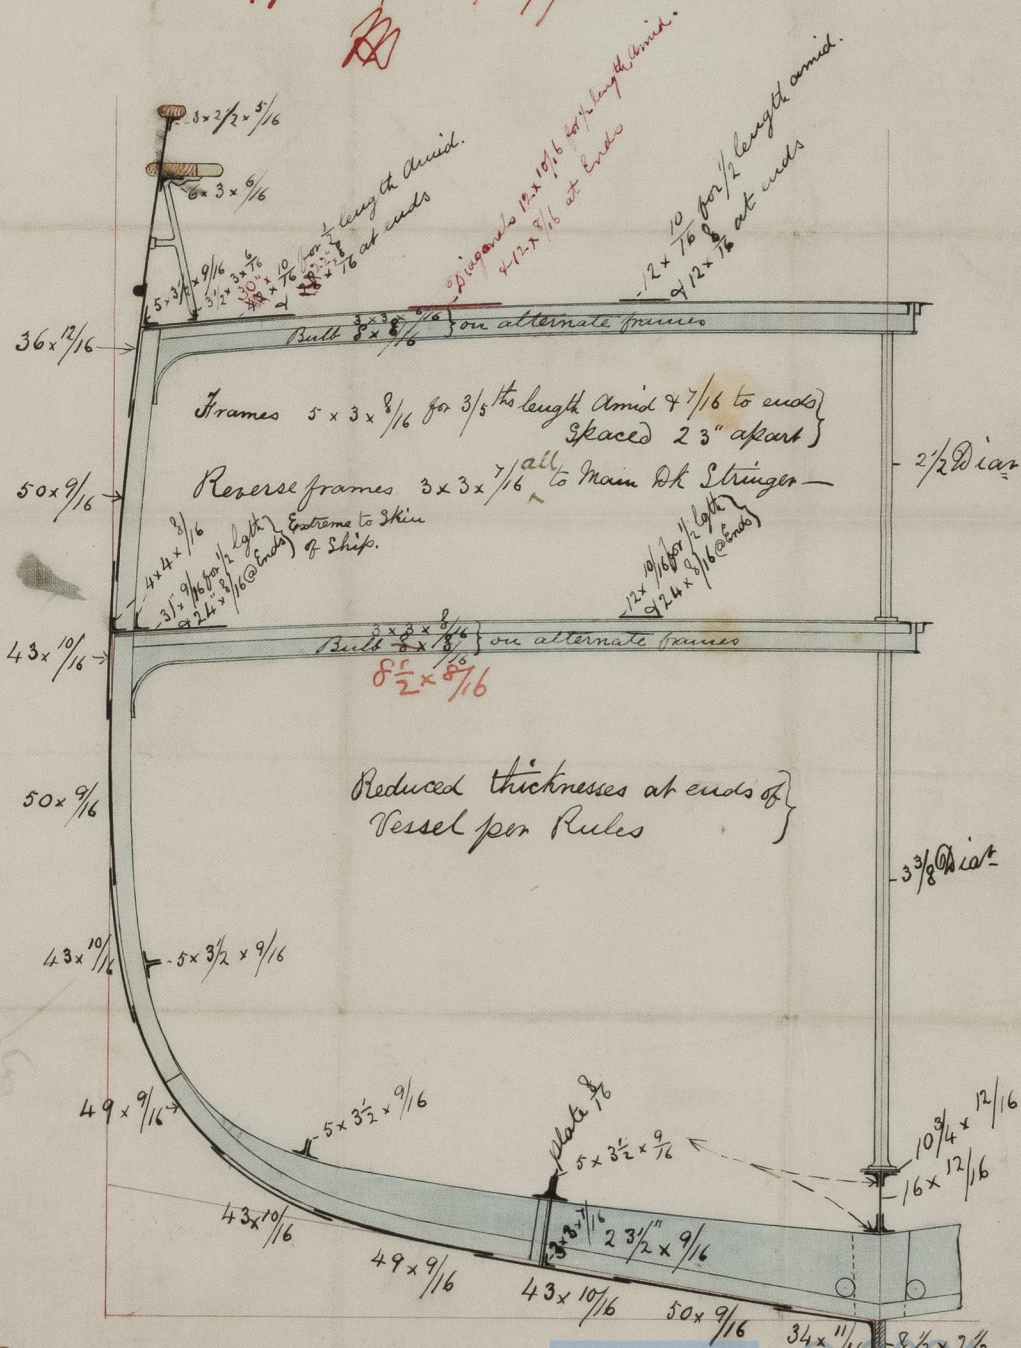 3 x 2 1/2 x 5/16
6 x 3 x 6/16
5 x 3 1/2 x 9/16
3 1/2 x 3 x 6/16
30" x 10/16 for 1/2 length amid.
& 8/16 at ends
Diagonals 12 x 10/16 for 1/2 length amid.
& 12 x 8/16 at Ends
12 x 10/16 for 1/2 length amid.
& 12 x 8/16 at ends
36 x 12/16
3 x 3 x 6/16
Bulb 8 x 8/16 } on alternate frames
Frames 5 x 3 x 8/16 for 3/5ths length amid & 7/16 to ends
Spaced 23" apart }
2 1/2 Diar
50 x 9/16
Reverse frames 3 x 3 x 7/16 all to Main Dk Stringer —
4 x 4 x 8/16
31" x 9/16 for 1/2 lgth
& 24" x 8/16 @ Ends }
Extreme to Skin
of Ship.
12 x 10/16 for 1/2 lgth
& 24 x 8/16 @ Ends }
43 x 10/16
3 x 3 x 8/16
Bulb 8 x 8/16 } on alternate frames
8 1/2 x 8/16
50 x 9/16
Reduced thicknesses at ends of
Vessel per Rules }
3 3/8 Diar
43 x 10/16
5 x 3 1/2 x 9/16
49 x 9/16
5 x 3 1/2 x 9/16
plate 8/16
5 x 3 1/2 x 9/16
10 3/4 x 12/16
16 x 12/16
43 x 10/16
3 x 3 x 7/16
23 1/2" x 9/16
49 x 9/16
43 x 10/16
50 x 9/16
34 x 11/
8 1/2 x 2 1/2